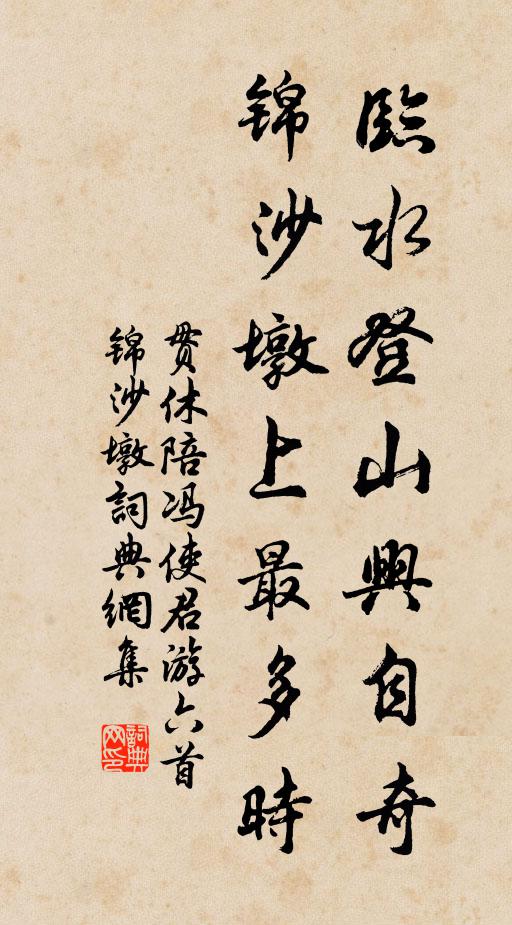 臨水登山興自奇
锦沙墩上最多時
贯休陪冯使君游六首
锦沙墩詞典網集
詞典网印